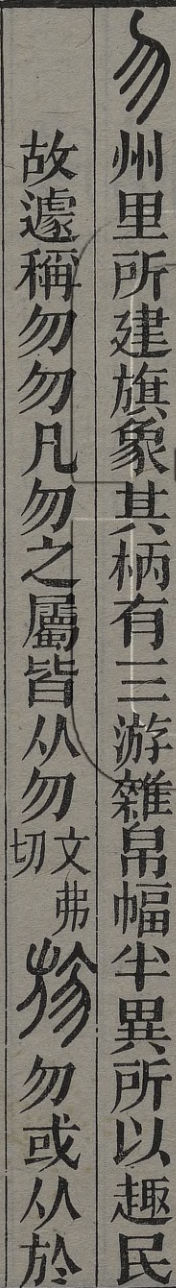 勿州里所建旗象其柄有三游雜帛幅半異所以趣民
故遽稱勿勿凡勿之屬皆从勿文弗切𣃦勿或从㫃